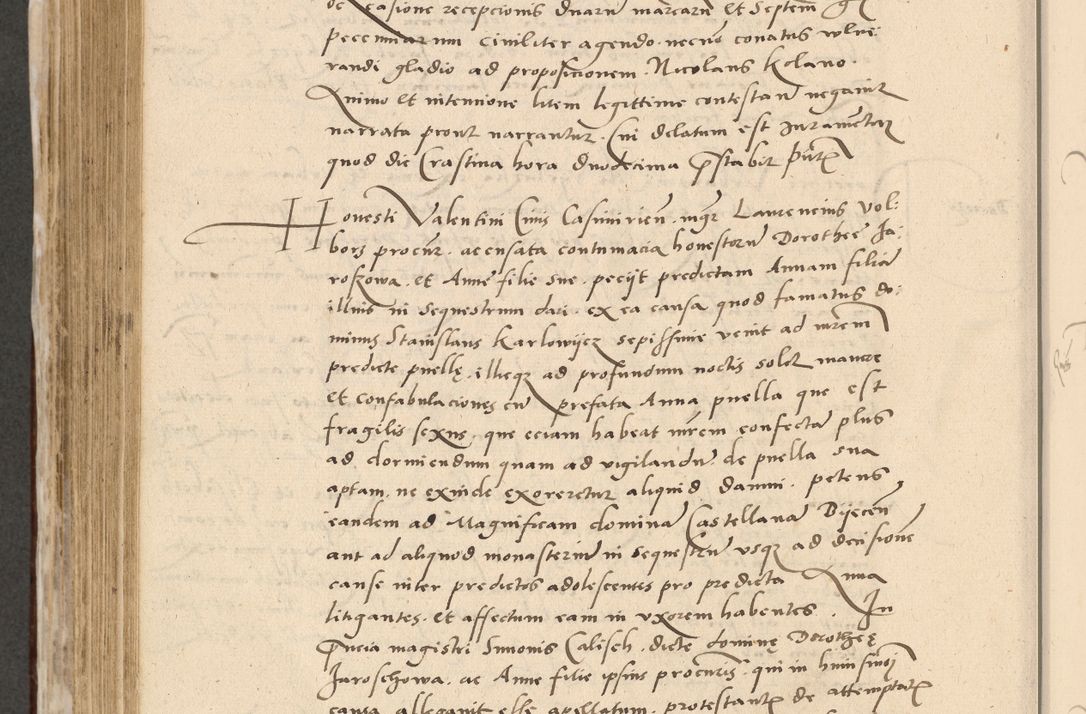 casione recepcionis duarum marcarum et septem
pecuniarum civiliter agendo necnon conatus vulne
randi gladio ad proposicionem Nicolaus Kolano
Animo et intencione litem legittime contestan negavit
narrata prout narrantur. Cui delatum est Iuramentum
quod die Crastina hora duodecima pstabit
Honesti Valentini Civis Casimirien mgr Laurencius Vol
borz procur accusata contumacia honestarum Dorothee Ja
roszowa et Anne filie sue peciit predictam Annam filiam
illius in sequestrum dari ex ea causa quod famatus do
minus Stanislaus Karlowijcz sepissime venit ad mrem
predicte puellę illicque ad profundum noctis solet manere
et confabulaciones cum prefata Anna puella que est
fragilis sexus que eciam habeat mrem confectam plus
ad dormiendum quam ad vigilandum de puella sua
aptam ne exinde exoreretur aliquid damni petens
eandem ad Magnificam dominam Castellanam Bijecen
aut ad aliquod monasterium in sequestrum usque ad decisionem
cause inter predictos adolescentes pro predicta Anna
litigantes et affectum eam in uxorem habentes. In
pncia magistri Simonis Calisch dicte dominę Dorotheę
Jaroschowa ac Anne filie ipsius procuris qui in huiusmodi
causa allegavit esse apellatum protestantur de attemptatis